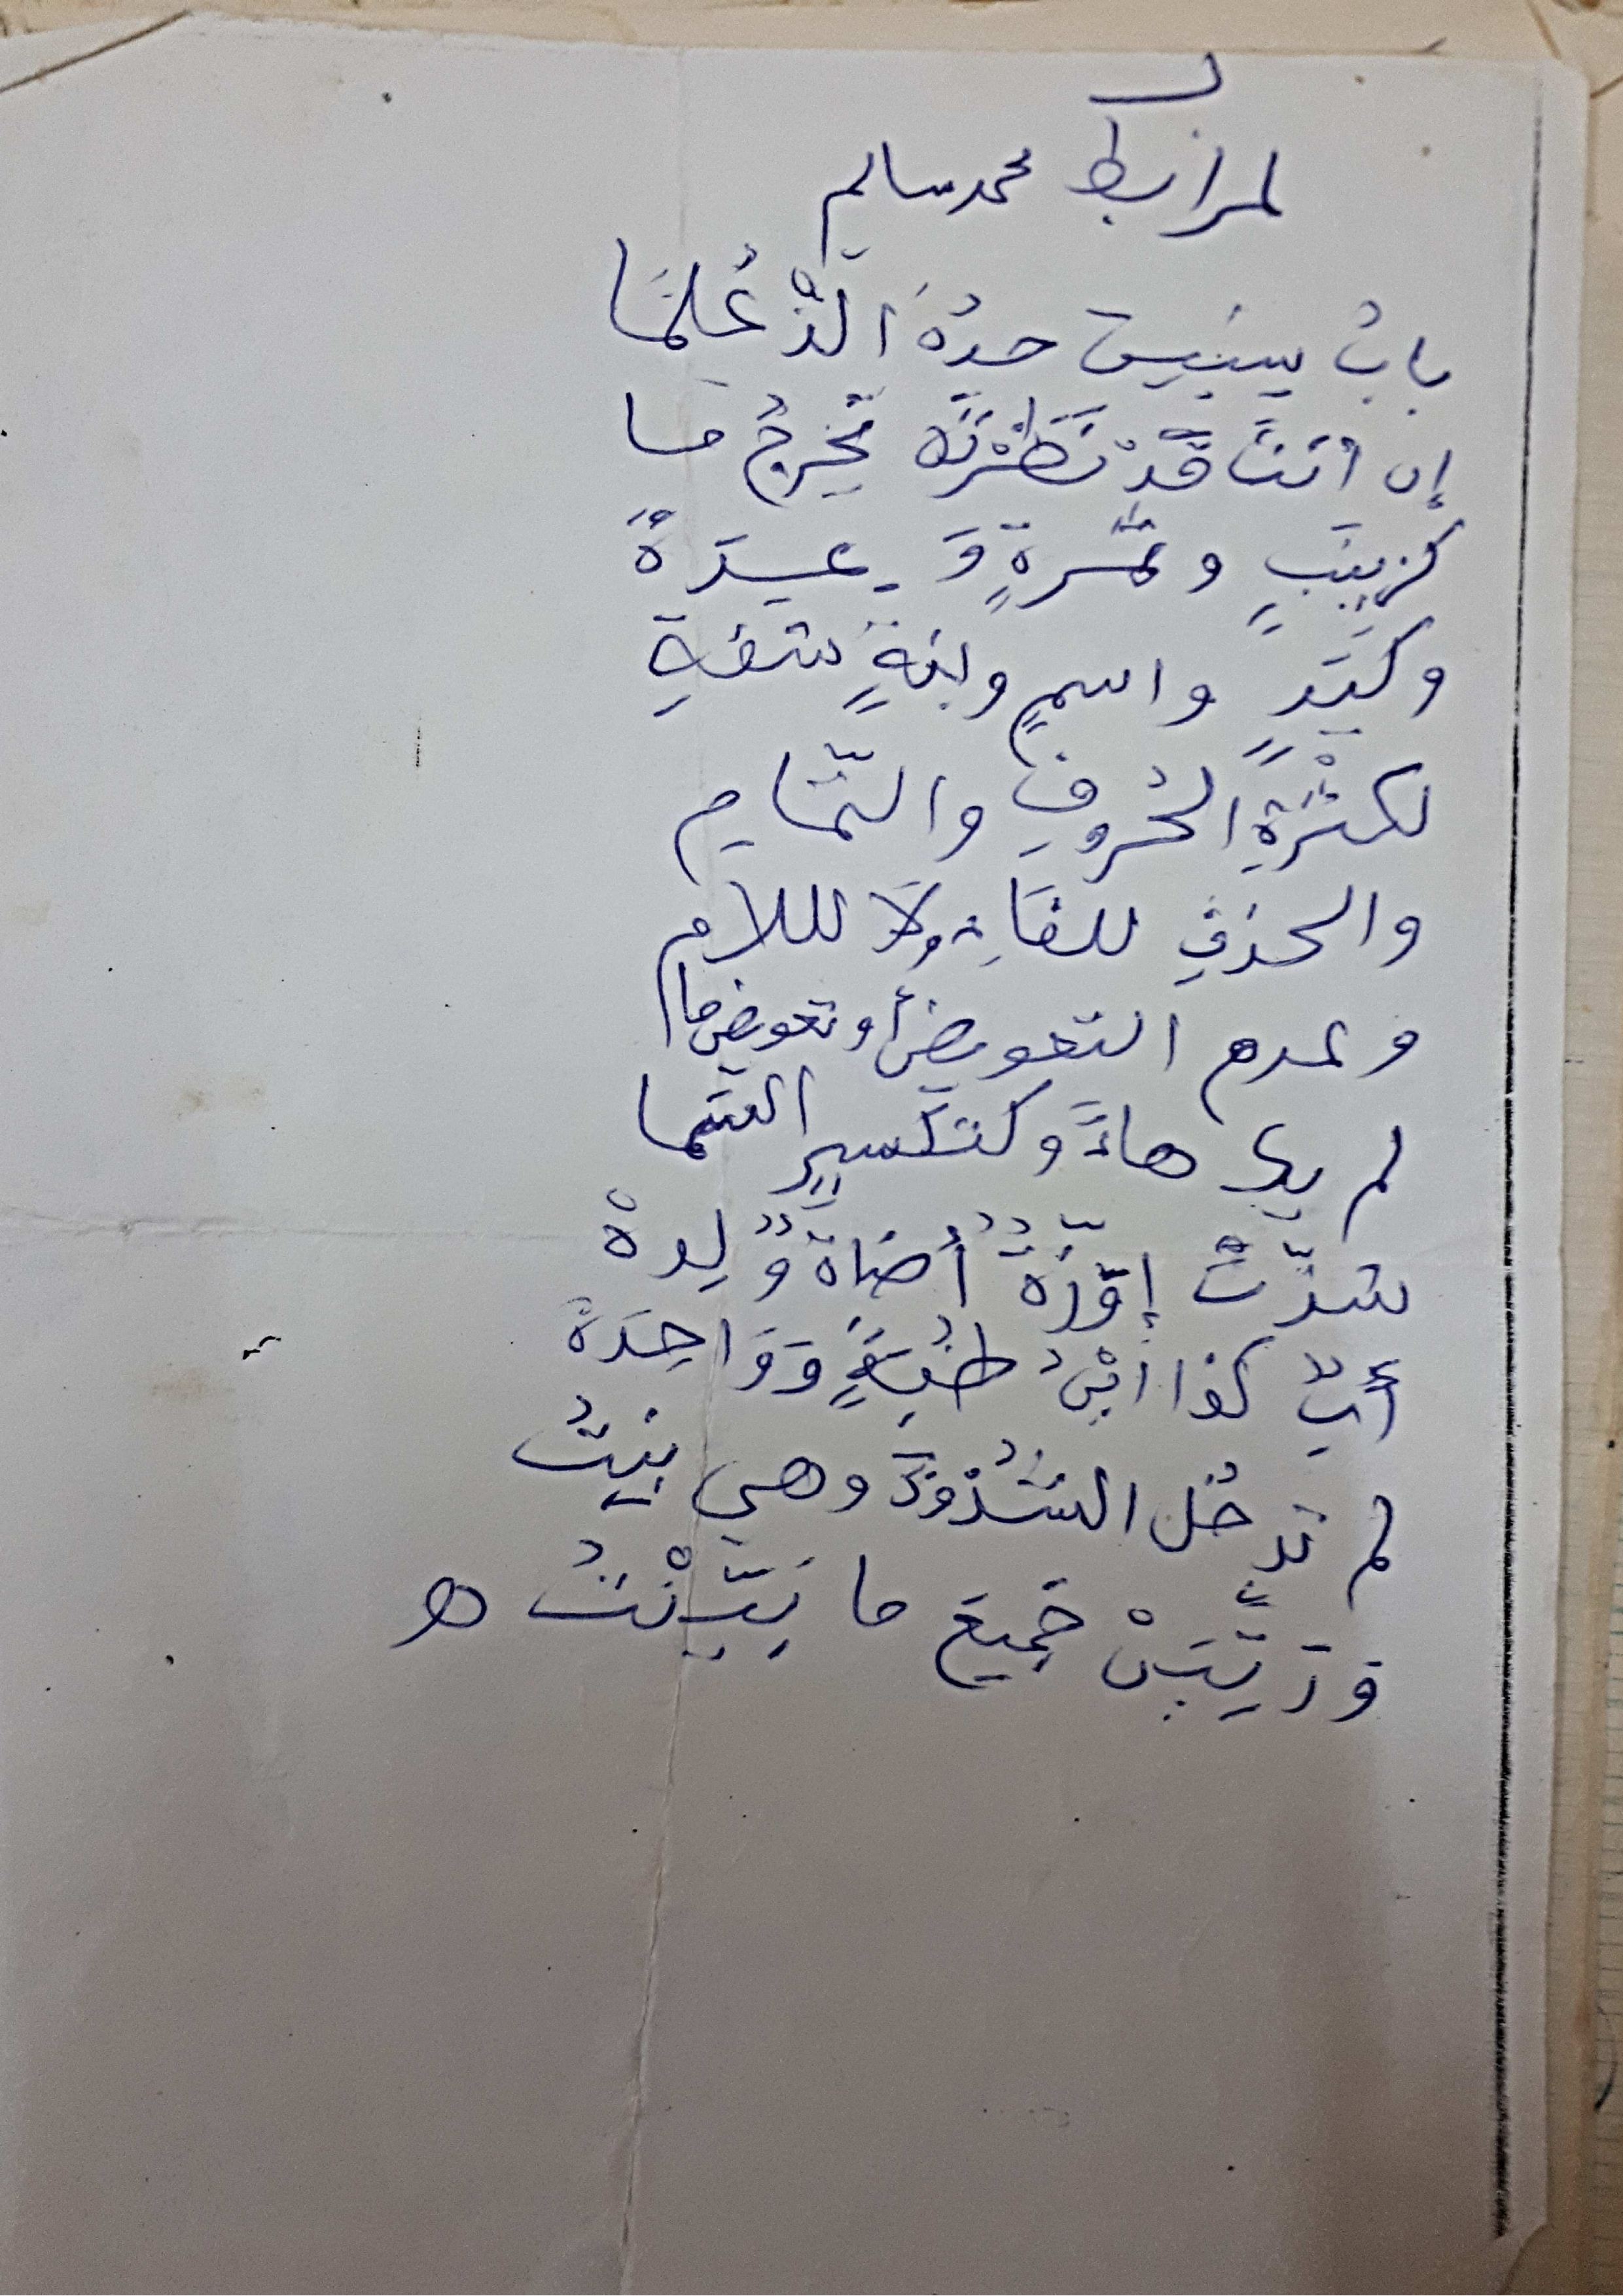 لمرابط محمد سالم
بابُ سِنِينَ حدُهُ الَّذْ عُلِمَا
إن أنتَ قَدْ نَظَرْتَهُ تُخرِجُ مَا
كزينبٍ وتمْرةٍ وَعِدَةْ
وكَيَدٍ واسمٍ وبنةٍ شفةِ
لكثْرَةِ الحُروفِ والتَّمامِ
والحذفِ للفَاءِ ولَا لللامِ
وعدم التعويضِ أو تعويضِ ما
لم يك هاءً وكتكسيرِ السَّما
شذَّتْ إوَزَّةٌ أضاةٌ وَلِدةْ
أبٌ كذا ابْنٌ ظُبَةٍ وَوَاحِدَةْ
لم تدخُل الشُذُوذَ وهي بِنتُ
وَرَتِّبَنْ جَمِيعَ ما بَيَّنْتُ هـ